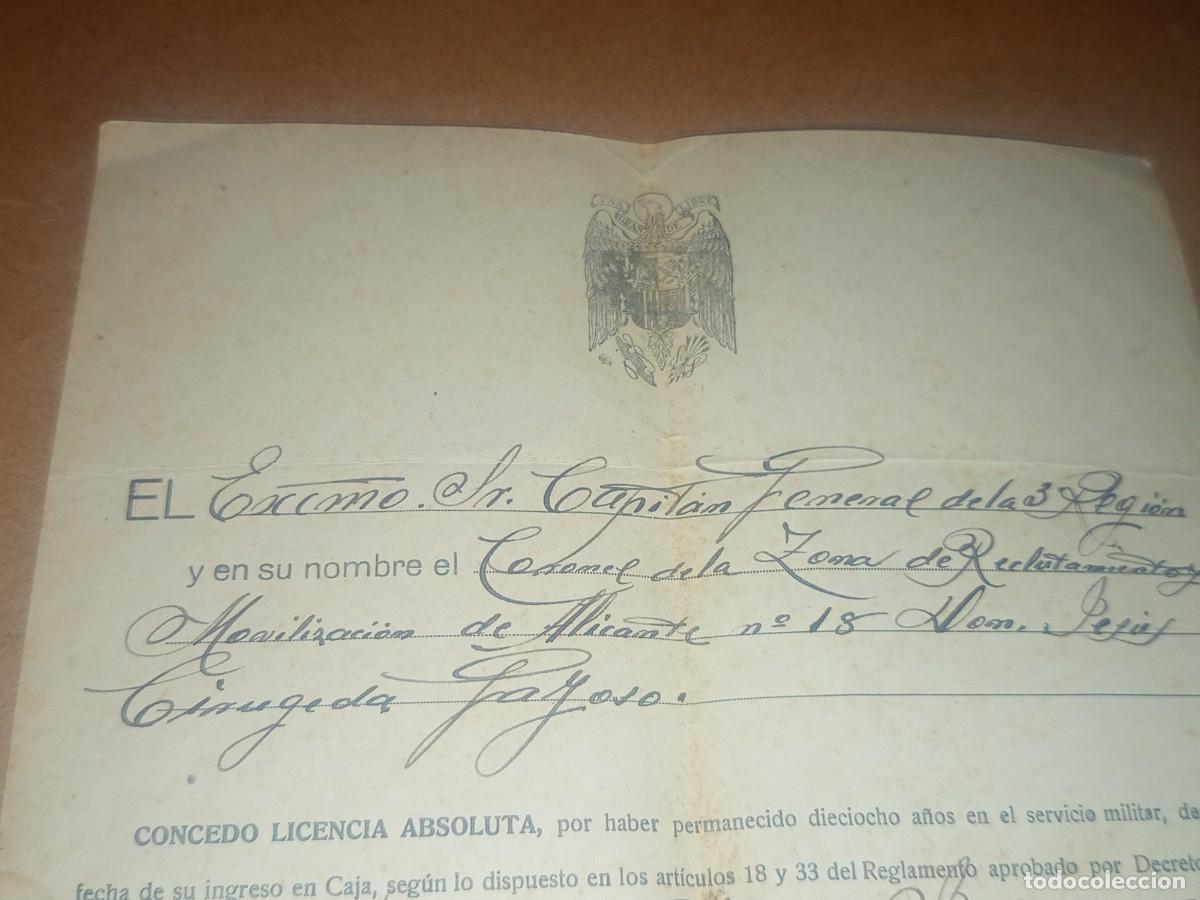 UNA GRANDE LIBRE
EL Excmo. Sr. Capitán General de la 3 Región
y en su nombre el Coronel de la Zona de Reclutamiento y
Movilización de Alicante nº 18 Don. Jesús
Cirugeda Gayoso.
CONCEDO LICENCIA ABSOLUTA, por haber permanecido dieciocho años en el servicio militar, de
fecha de su ingreso en Caja, según lo dispuesto en los artículos 18 y 33 del Reglamento aprobado por Decreto
todocoleccion